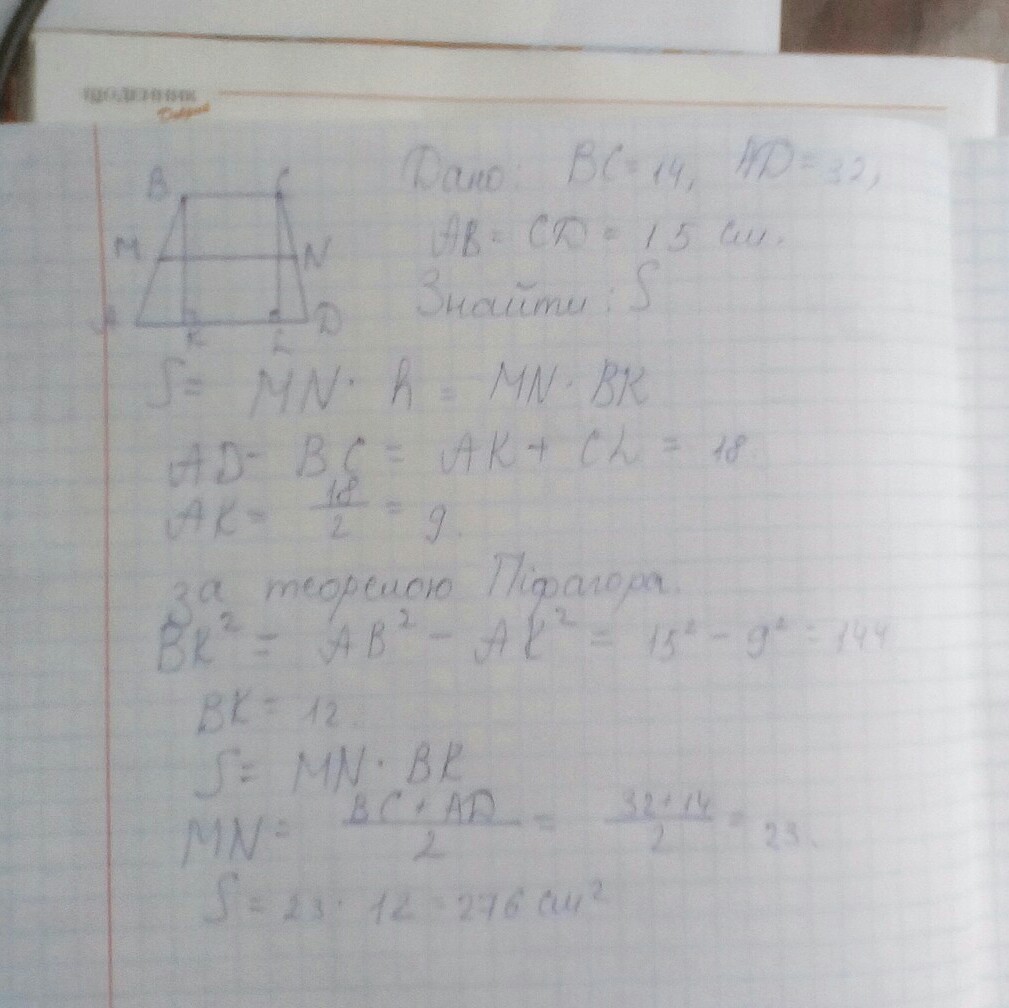 ЩОДЕННИК
Дано: BC = 14, AD = 32,
AB = CD = 15 см.
Знайти: S
B C
M N
A K L D
S = MN · h = MN · BK
AD - BC = AK + CL = 18
AK = 18/2 = 9.
за теоремою Піфагора.
BK² = AB² - AK² = 15² - 9² = 144
BK = 12.
S = MN · BK
MN = BC + AD/2 = 32 + 14/2 = 23.
S = 23 · 12 = 276 см²